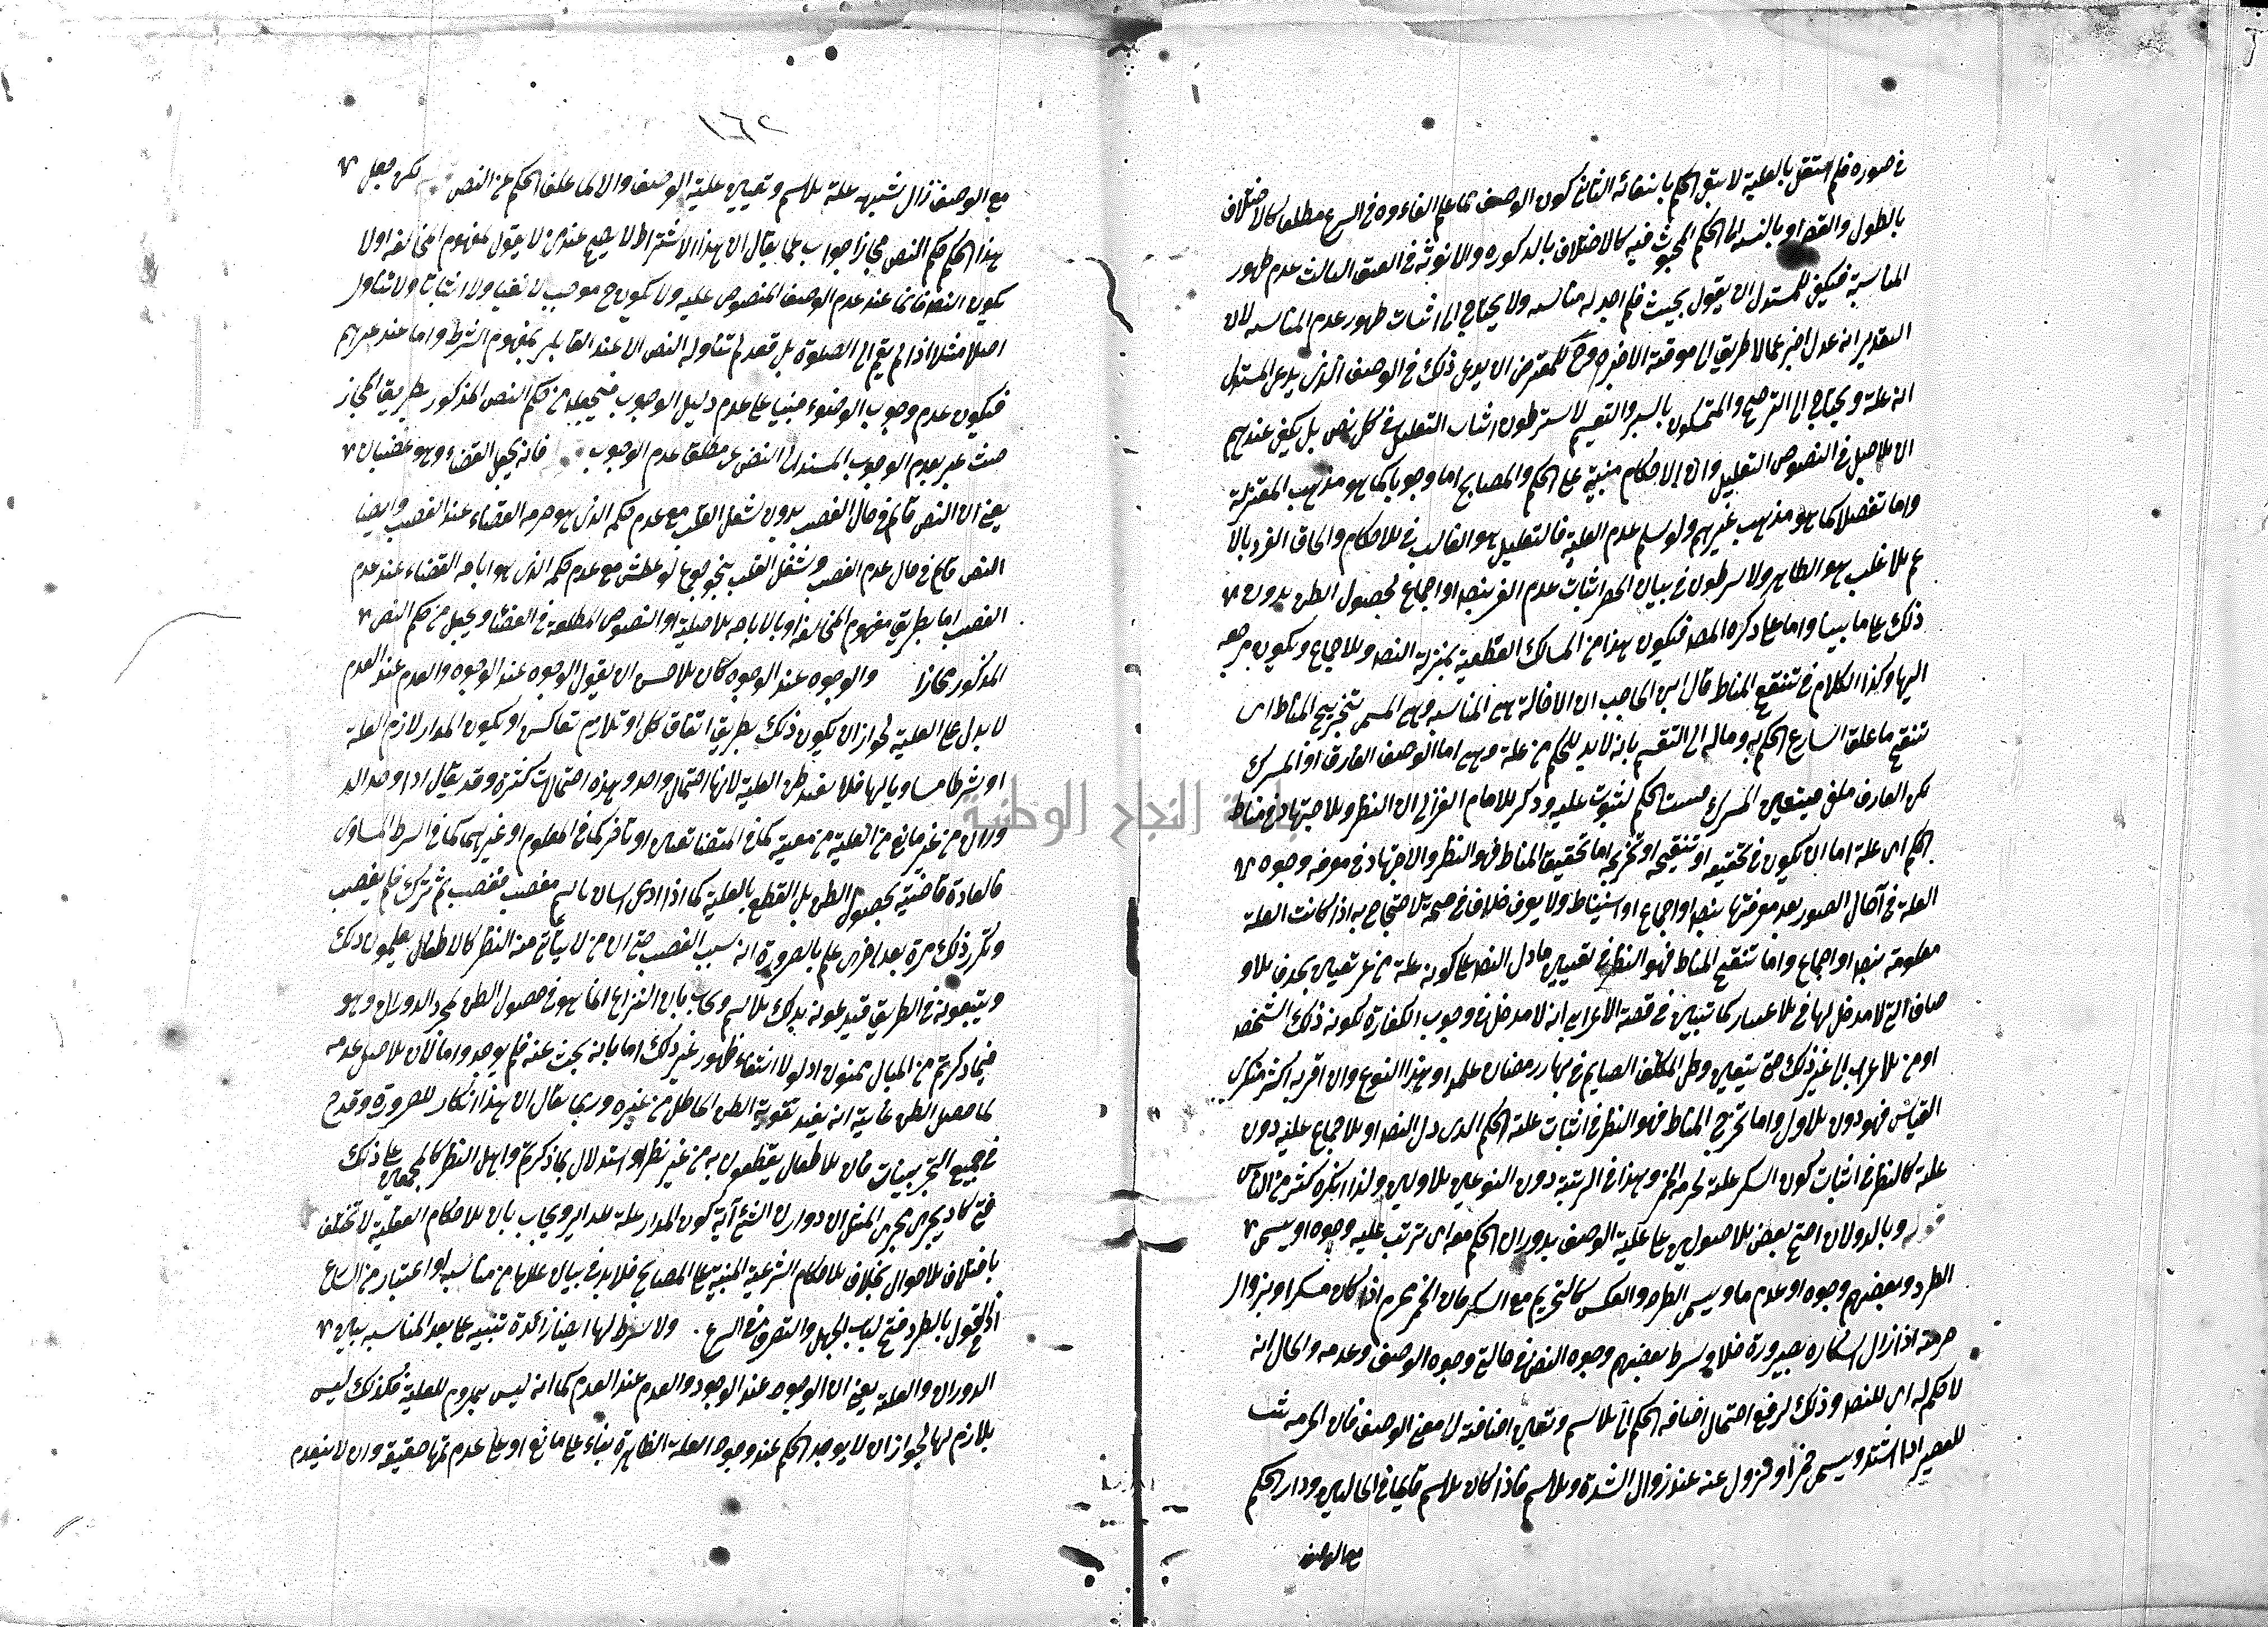 في صورة فلم استقل بالعلية لا سبق الحكم بانتفائه الثاني كون الوصف مما علم الغاءوه في الشرع مطلقا كالاختلاف
بالطول والقصر او بالنسبة الى الحكم المبحوث فيه كالاختلاف بالذكورة والانوثة في العتق الثالث عدم ظهور
المناسبة فيكفي للمستدل ان يقول بحثت فلم اجد له مناسبة ولا يحتاج الى اثبات ظهور عدم المناسبة لان
التقدير انه عدل اخبر عما لا طريق الى معرفته الا خبره وح للمعترض ان يدعي ذلك في الوصف الذي يدعي المستدل
انه علة ويحتاج الى الترجيح والمتمسكون بالسبر والتقسيم لا يشترطون اثبات التعليل في كل نص بل يكفي عندهم
ان الاصل في النصوص التعليل وان الاحكام مبنية على الحكم والمصالح اما وجوبا كما هو مذهب المعتزلة
واما تفضلا كما هو مذهب غيرهم ولو سلم عدم العلية فالتعليل هو الغالب في الاحكام والحاق الفرد بالا
عم الاغلب هو الظاهر ولا يشترطون في بيان الحصر اثبات عدم الغير بنص او اجماع لحصول الظن بدون
ذلك على ما بينا واما على ما ذكره المصـ فيكون هذا من المسالك القطعية بمنزلة النص والاجماع ويكون مرجعه
اليها وكذا الكلام في تنقيح المناط قال ابن الحاجب ان الاخالة هي المناسبة وهي المسمى بتخريج المناط اي
تنقيح ما علق الشارع الحكم به وماله الى التقسيم بانه لا بد للحكم من علة وهي اما الوصف الفارق او المشترك
لكن الفارق ملغى فيتعين المشترك فيثبت الحكم لثبوت علته وذكر الامام الغزالي ان النظر والاجتهاد في مناط
الحكم اي علته اما ان يكون في تحقيقه او تنقيحه او تخريجه اما تحقيق المناط فهو النظر والاجتهاد في معرفة وجود
العلة في آحاد الصور بعد معرفتها بنص او اجماع او استنباط ولا يعرف خلاف في صحة الاحتجاج به اذا كانت العلة
معلومة بنص او اجماع واما تنقيح المناط فهو النظر في تعيين ما دل النص على كونه علة من غير تعيين بحذف الاو
صاف التي لا مدخل لها في الاعتبار كما تبين في قصة الاعرابي انه لا مدخل في وجوب الكفارة لكونه ذلك الشخص
او من الاعراب الى غير ذلك حتى يتعين وطئ المكلف الصايم في نهار رمضان عامدا وهذا النوع وان اقر به اكثر منكري
القياس فهو دون الاول واما تخريج المناط فهو النظر في اثبات علة الحكم الذي دل النص او الاجماع عليه دون
علته كالنظر في اثبات كون السكر علة لحرمة الخمر وهذا في الرتبة دون النوعين الاولين ولذا انكره كثير من الناس
قوله وبالدوران احتج بعض الاصوليين على علية الوصف بدوران الحكم معه اي ترتب عليه وجودا ويسمى
الطرد وبعضهم وجودا وعدما ويسمى الطرد والعكس كالتحريم مع السكر فان الخمر يحرم اذا كان مسكرا ويزول
حرمته اذا زال اسكاره بصيرورته خلا وشرط بعضهم وجود النص في حالتي وجود الوصف وعدمه والحال انه
لا حكم له اي للنص وذلك لرفع احتمال اضافة الحكم الى الاسم وتعين اضافته الى معنى الوصف فان الحرمة تثبت
للعصير اذا اشتد ويسمى خمرا وتزول عنه عند زوال الشدة والاسم فاذا كان الاسم قايما في الحالين ودار الحكم
مع الوصف
١٦٢
مع الوصف زال شبهة علة الاسم وتعيين علية الوصف والا لما تخلف الحكم عن النص لكن جعل
هذا الحكم حكم النص مجازا جواب عما يقال ان هذا الاشتراط لا يصح عند من لا يقول بمفهوم المخالفة اولا
يكون النص قائما عند عدم الوصف المنصوص عليه ولا يكون ح موجب لا نفيا ولا اثباتا ولا تناول
اصلا مثلا اذا لم يقم الى الصلوة بل قعد لم تتناوله النص الا عند القايلين بمفهوم الشرط واما عند غيرهم
فيكون عدم وجوب الوضوء مبنيا على عدم دليل الوجوب فيجعله من حكم النص المذكور بطريق المجاز
حيث عبر بعدم الوجوب المستند الى النص عن مطلق عدم الوجوب فانه يحل القضاء وهو غضبان
يعني ان النص قائم في حال الغضب بدون شغل القلب مع عدم حكمه الذي هو حرمة القضاء عند الغضب وايضا
النص قايم في حال عدم الغضب وشغل القلب بنحو جوع او عطش مع عدم حكمه الذي هو اباحة القضاء عند عدم
الغضب اما بطريق مفهوم المخالفة او بالاباحة الاصلية او النصوص المطلقة في القضاء ويجعل من حكم النص
المذكور مجازا والوجود عند الوجود كان الاحسن ان يقول الوجود عند الوجود والعدم عند العدم
لا يدل على العلية لجواز ان يكون ذلك بطريق اتفاق كل او تلازم تعاكس او يكون المدار لازم العلة
او شرطا مساويا لها فلا يفيد ظن العلية لانها احتمال واحد وهذه احتمالات كثيرة وقد يقال اذا وجد الد
وران من غير مانع من العلية من معية كما في المتضايفين او تاخر كما في المعلول او غيرهما كما في الشرط المساوي
فالعادة قاضية بحصول الظن بل القطع بالعلية كما اذا ادعي انسان باسم مغضب فغضب ثم ترك فلم يغضب
وتكرر ذلك مرة بعد اخرى علم بالضرورة انه سبب الغضب حتى ان من لا يتأتى منه النظر كالاطفال يعلمون ذلك
ويتبعونه في الطريق فيدعونه بذلك الاسم ويجاب بان النزاع انما هو في حصول الظن بمجرد الدوران وهو
فيما ذكرتم من المثال ممنوع اذ لولا انتفاء ظهور غير ذلك اما بانه بحث عنه فلم يوجد واما لان الاصل عدمه
لما حصل الظن غايته انه يفيد تقوية الظن الحاصل من غيره وربما يقال ان هذا انكار للضرورة وقدح
في جميع التجربيات فان الاطفال يقطعون به من غير نظر واستدلال بما ذكرتم واهل النظر كالمجمعين على ذلك
حتى كاد يجري مجرى المثل ان دوران الشئ آية كون المدار علة للدائر ويجاب بان الاحكام العقلية لا تختلف
باختلاف الاحوال بخلاف الاحكام الشرعية المبنية على المصالح فلا بد في بيان عللها من مناسبة او اعتبار من الشارع
اذ القول بالطرد فتح لباب الجهل والتصرف في الشرع. ولا يشترط لها ايضا زائدة تنبيه على بعد المناسبة بين
الدوران والعلة يعني ان الوجود عند الوجود والعدم عند العدم كما انه ليس بملزوم للعلية فكذلك ليس
بلازم لها لجواز ان لا يوجد الحكم عند وجود العلة الظاهرة بناء على مانع او على عدم تمامها حقيقة وان لا ينعدم